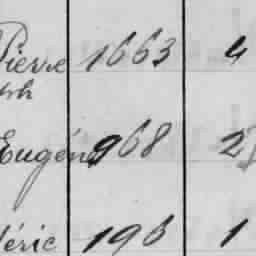 Pierre 1663 4
Eugène 968 2
déric 196 1